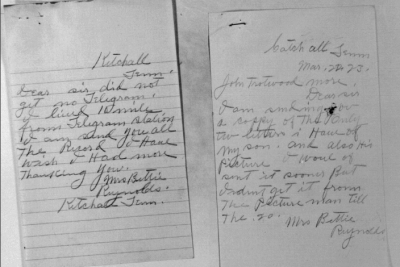 Kitchall
Tenn.
Dear sir did not
get no Telegram,
I live 10 mile
from Telegram station
I am send you all
The Record I Have
Wish I Had more
Thanking you.
Mrs Bettie
Reynolds.
Kitchall Tenn.
Catch all Tenn
Mar, 22 23.
John Trotwood more.
Dear sir
I am sending you
a coppy of The Only
two letters I Have of
my son. and also his
Picture I would of
sent it sooner But
I didnt get it from
The Picture man till
The .20.
Mrs Bettie
Reynolds